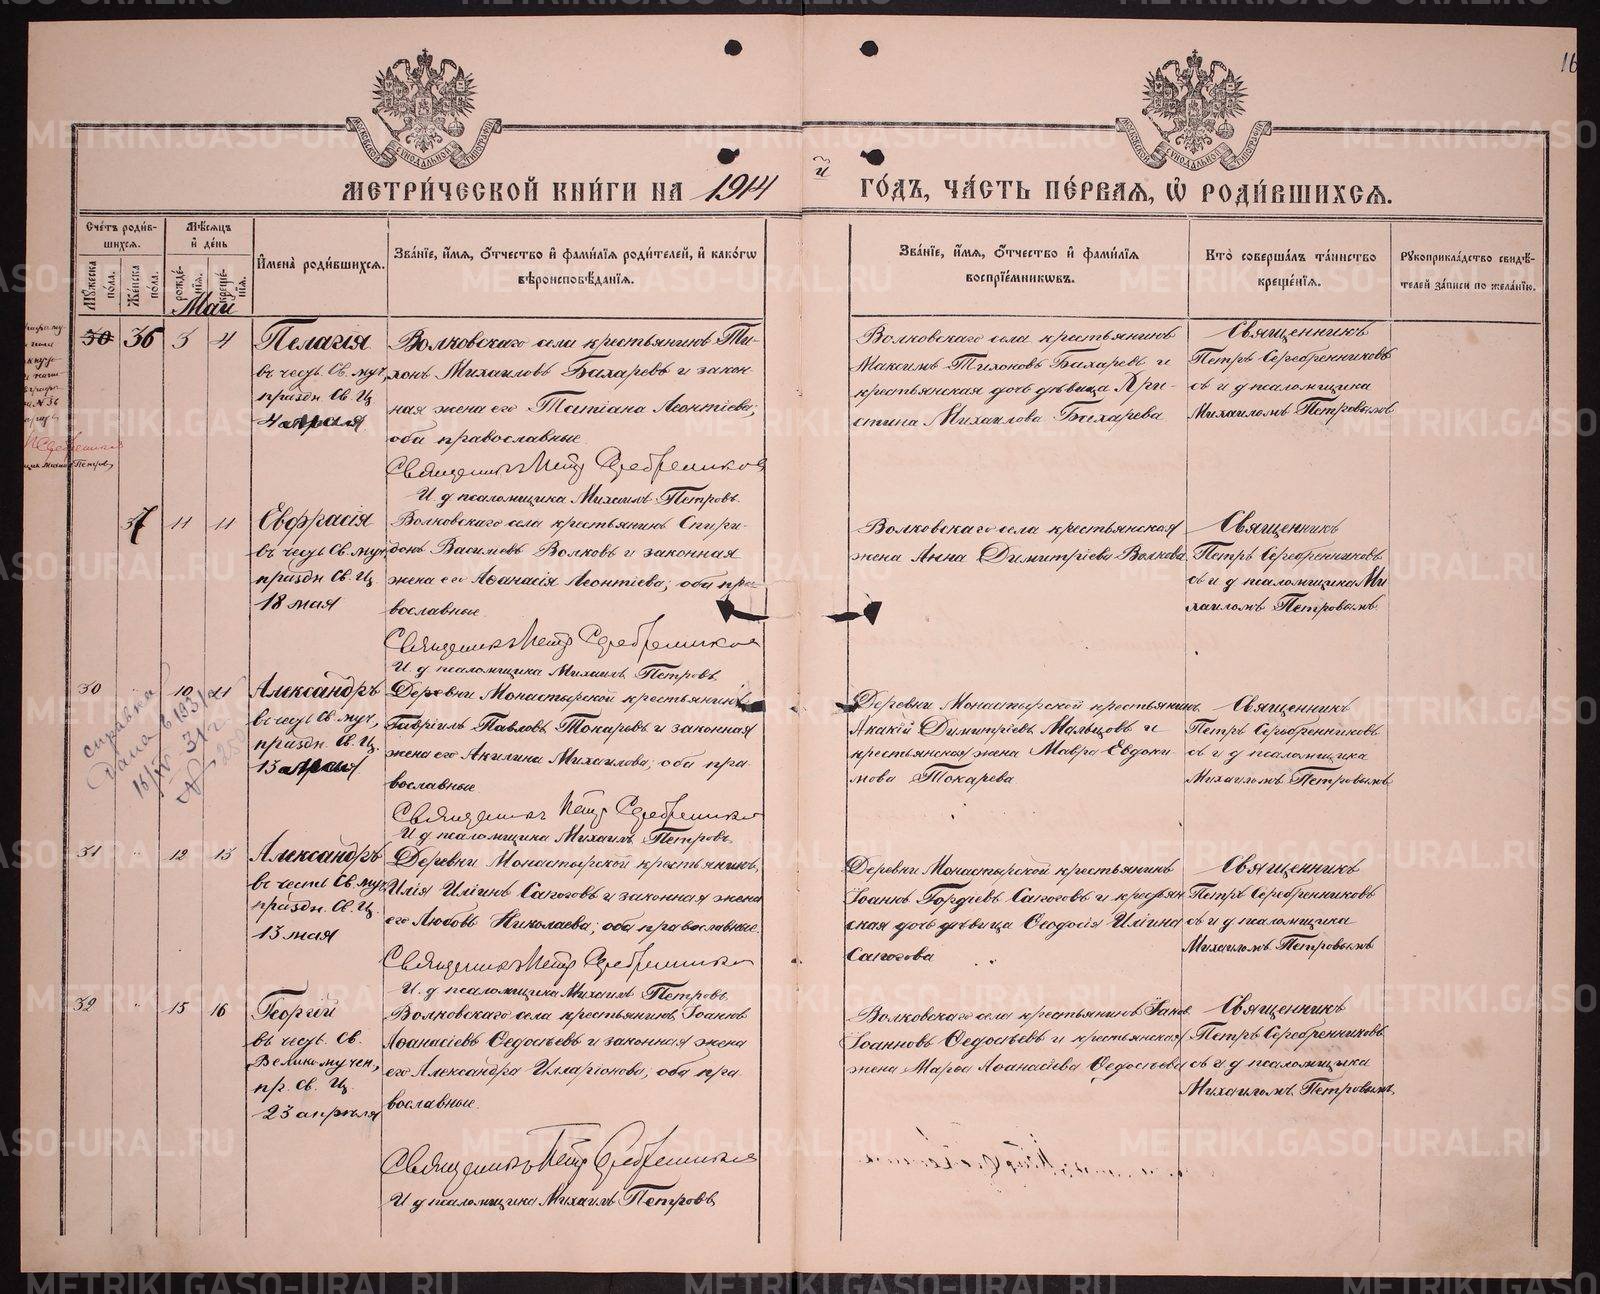 16
МЕТРИ́ЧЕСКОЙ КНИ́ГИ НА 1914 й ГО́ДЪ, ЧА́СТЬ ПЕ́РВАЯ, Ѡ РОДИ́ВШИХСЯ.
Сче́тъ роди́в-
шихся.
Му́жеска по́ла.
Же́нска по́ла.
Мѣ́сяцъ и де́нь
рожде́-
нія.
креще́-
нія.
И́мена роди́вшихся.
Зва́ніе, и́мя, ѻ́тчество и фами́лія роди́телей, и како́гѡ
вѣроисповѣ́данія.
Зва́ніе, и́мя, ѻ́тчество и фами́лія
воспріе́мникѡвъ.
Кто̀ соверша́лъ та́инство
креще́нія.
Рукоприкла́дство свидѣ́-
телей за́писи по жела́нію.
Май
30 36 3 4
Пелагія
въ честь Св. муч,
праздн. Св. Ц.
4 мая
Волковскаго села крестьянинъ Ти-
хонъ Михаиловъ Бахаревъ и закон
ная жена его Татіана Леонтіева;
оба православные.
Священникъ Петръ Серебренниковъ
И. д псаломщика Михаилъ Петровъ.
Волковскаго села крестьянинъ
Максимъ Тихоновъ Бахаревъ и
крестьянская дочь дѣвица Хри-
стина Михаилова Бахарева
Священникъ
Петръ Серебренниковъ
съ и д псаломщика
Михаиломъ Петровымъ
37 11 11
Евфрасія
въ честь Св. муч,
праздн. Св. Ц.
18 мая
Волковскаго села крестьянинъ Спири-
донъ Васильевъ Волковъ и законная
жена его Аѳанасія Леонтіева; оба пра-
вославные.
Священникъ Петръ Серебренниковъ
И. д псаломщика Михаилъ Петровъ
Волковскаго села крестьянская
жена Анна Димитріева Волкова
Священникъ
Петръ Серебренниковъ
съ и д псаломщика Ми
хаиломъ Петровымъ
30 10 11
справка
дана в 1931 г.
Александръ
въ честь Св. муч,
праздн. Св. Ц.
13 мая
Деревни Монастырской крестьянинъ
Гавріилъ Павловъ Токаревъ и законная
жена его Акилина Михаилова; оба пра
вославные
Священникъ Петръ Серебренниковъ
И д псаломщика Михаилъ Петровъ
Деревни Монастырской крестьянинъ
Акакій Димитріевъ Мальцовъ и
крестьянская жена Мавра Евдоки
мова Токарева
Священникъ
Петръ Серебренниковъ
съ и д псаломщика
Михаиломъ Петровымъ
31 12 13
Александръ
въ честь Св. муч,
праздн. Св. Ц.
13 мая
Деревни Монастырской крестьянинъ
Илія Илiинъ Сапоговъ и законная жена
его Любовь Николаева; оба православные.
Священникъ Петръ Серебренниковъ
И. д псаломщика Михаилъ Петровъ
Деревни Монастырской крестьянинъ
Іоаннъ Гордіевъ Сапоговъ и крестьян
ская дочь дѣвица Ѳеодосія Иліина
Сапогова
Священникъ
Петръ Серебренниковъ
съ и д псаломщика
Михаиломъ Петровымъ
32 15 16
Георгій
въ честь. Св.
Великомучен,
пр. Св. Ц.
23 апрѣля
Волковскаго села крестьянинъ Іоаннъ
Аѳанасіевъ Ѳедосѣевъ и законная жена
его Александра Илларіонова; оба пра
вославные.
Священникъ Петръ Серебренниковъ
И д псаломщика Михаилъ Петровъ
Волковскаго села крестьянинъ Іаков
Іоанновъ Ѳедосѣевъ и крестьянская
жена Марѳа Аѳанасіева Ѳедосѣева
Священникъ
Петръ Серебренниковъ
съ и д псаломщика
Михаиломъ Петровымъ
METRIKI.GASO-URAL.RU